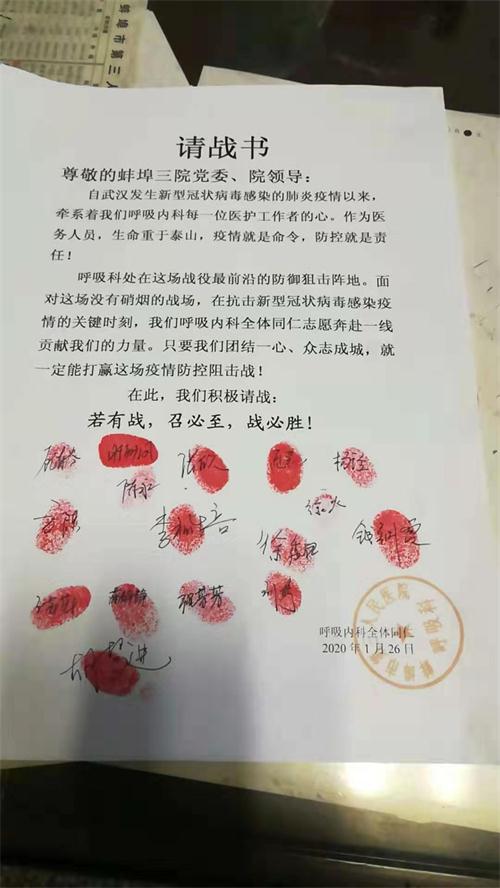 蚌埠市第三人
请战书
尊敬的蚌埠三院党委、院领导：
自武汉发生新型冠状病毒感染的肺炎疫情以来，
牵系着我们呼吸内科每一位医护工作者的心。作为医
务人员，生命重于泰山，疫情就是命令，防控就是责
任！
呼吸科处在这场战役最前沿的防御狙击阵地。面
对这场没有硝烟的战场，在抗击新型冠状病毒感染疫
情的关键时刻，我们呼吸内科全体同仁志愿奔赴一线
贡献我们的力量。只要我们团结一心、众志成城，就
一定能打赢这场疫情防控阻击战！
在此，我们积极请战：
若有战，召必至，战必胜！
呼吸内科全体同仁
2020 年 1 月 26 日
蚌埠市第三人民医院
呼吸科